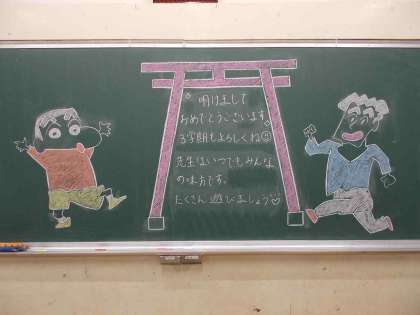 明けまして
おめでとうございます。
3学期もよろしくね
先生はいつでもみんな
の味方です。
たくさん遊びましょう